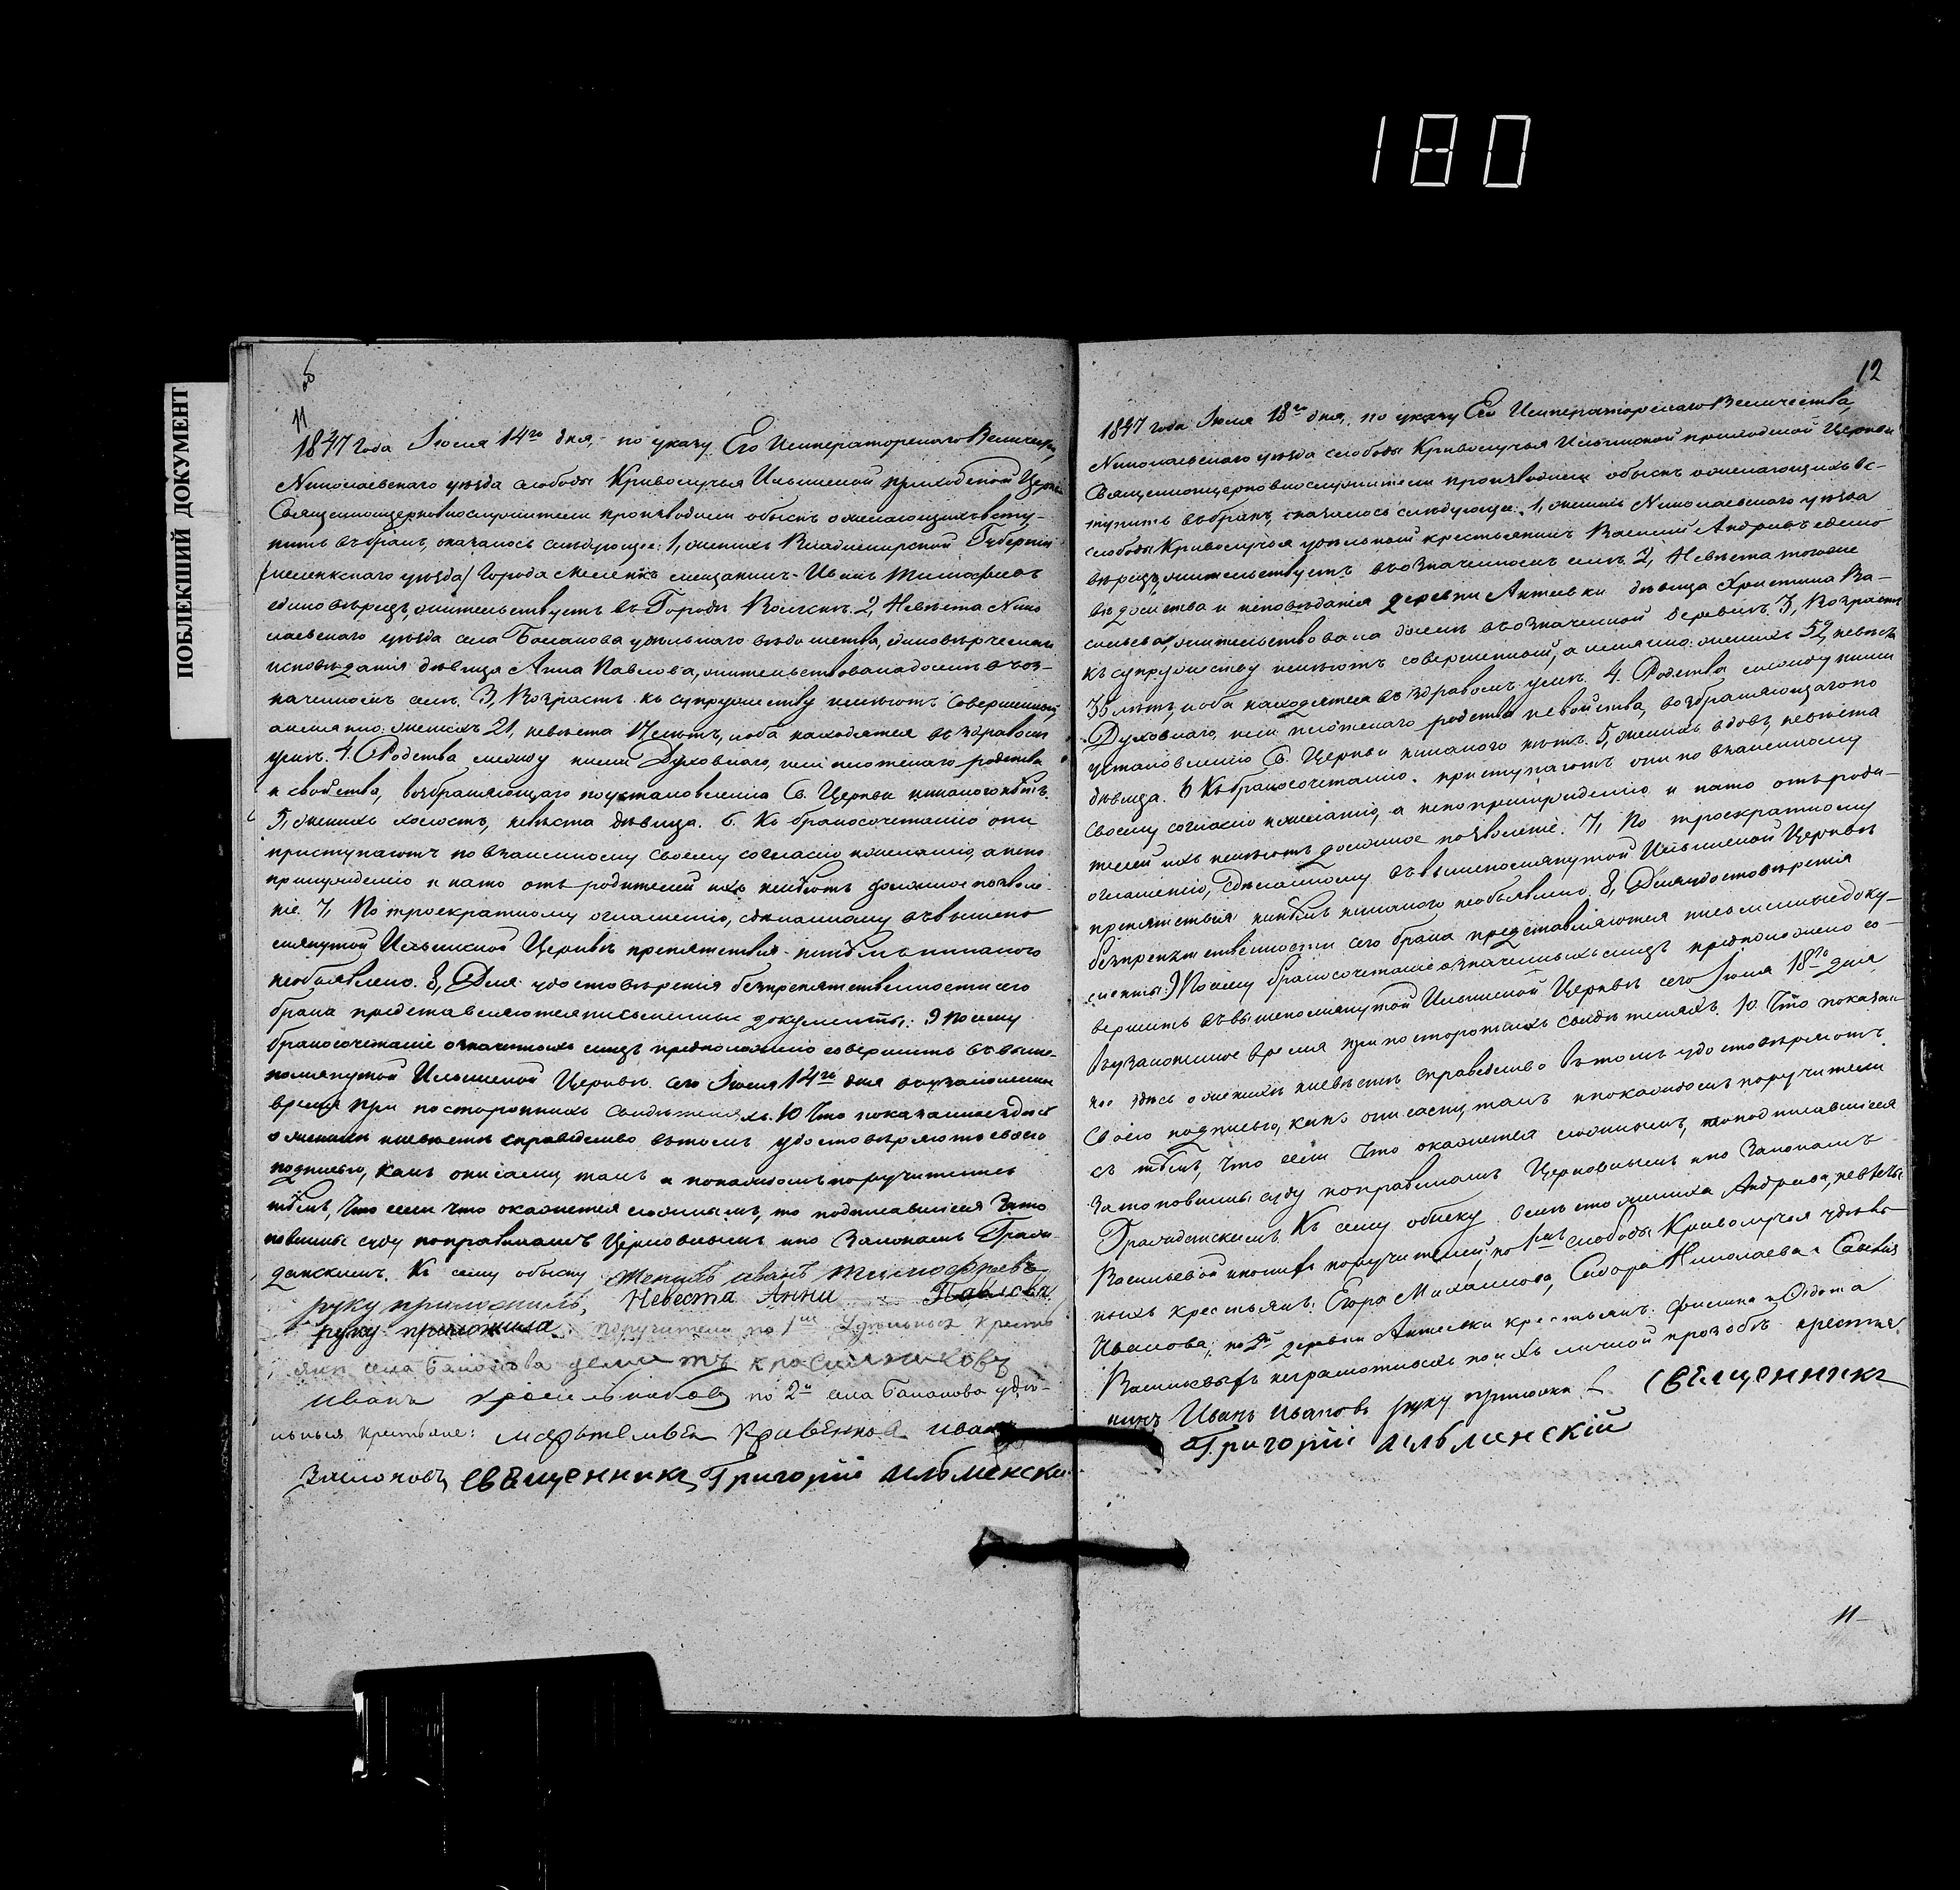 180
ПОБЛЕКШИЙ ДОКУМЕНТ
об
11
1847 года Июля 14го дня, по указу Его Императорскаго Величества,
Николаевскаго уезда слободы Криволучья Ильинской приходской Церкви
Священноцерковнослужители производили обыскъ о желающихъ всту-
пить въ бракъ, оказалось следующее: 1, женихъ Владимирской Губернiи
/меленкскаго уезда/ Города Меленкъ мещанинъ Иванъ Тимофеевъ
единоверецъ, жительствуетъ въ Городе Вольске. 2, Невеста Нико
лаевскаго уезда села Балакова удельнаго ведомства, единоверческаго
исповеданiя девица Анна Павлова, жительствовала доселе въ оз-
наченномъ селе. 3, Возрастъ къ супружеству имеютъ совершенный,
а именно: женихъ 21, невеста 17 летъ, и оба находятся въ здравомъ
уме. 4. Родства между ними Духовнаго, или плотскаго родства
и свойства, возбраняющаго по установленiю Св. Церкви никакого нетъ.
5, женихъ холостъ, невеста девица. 6. Къ бракосочетанiю они
приступаютъ по взаимному своему согласiю и желанiю, а не по
принужденiю и на то отъ родителей ихъ имеютъ должное позволе-
нiе. 7, По троекратному оглашенiю, сделанному въ вышепо
мянутой Ильинской Церкви препятствiя никемъ никакого
необъявлено. 8, Для удостоверенiя безпрепятственности сего
брака представляются письменные документы: 9 По сему
бракосочетанiе означенныхъ лицъ предположено совершить въ выше-
помянутой Ильинской Церкви сего Июля 14го дня въ узаконенное
время при постороннихъ свидетеляхъ. 10 Что показанное здесь
о женихе и невесте справедливо въ томъ удостоверяютъ своею
подписью, какъ они сами, такъ и по каждомъ поручители съ
темъ, что если что окажется ложнымъ, то подписавшiеся за то
повинны суду по правиламъ Церковнымъ и по Законамъ Граж-
данскимъ. Къ сему обыску женихъ иванъ тимофеевъ
руку приложилъ, Невеста Анна Павлова
руку приложила. поручители по 1мъ Удельныхъ крестья
янъ села Балакова
Иванъ по 2й села Балакова уде-
льныя крестьяне: иванъ
свещенникъ Григорiй ильменски
12
1847 года Июля 18го дня, по указу Его Императорскаго Величества,
Николаевскаго уезда слободы Криволучья Ильинской приходской Церкви
Священноцерковнослужители производили обыскъ о желающихъ вс-
тупить въ бракъ, оказалось следующее: 1, женихъ Николаевскаго уезда
слободы Криволучья удельный крестьянинъ Василий Андреевъ едино
верецъ, жительствуетъ въ означенномъ селе. 2, Невеста тогоже
ведомства и исповеданiя деревни Актеевки девица Христина Ва-
сильева, жительствовала доселе въ означенной деревне. 3, Возрастъ
къ супружеству имеютъ совершенный, а именно: женихъ 52, невеста
35 летъ, и оба находятся въ здравомъ уме. 4. Родства между ними
Духовнаго, или плотскаго родства и свойства, возбраняющаго по
установленiю Св. Церкви никакого нетъ. 5, женихъ вдовъ, невеста
девица. 6 Къ бракосочетанiю приступаютъ они по взаимному
своему согласiю и желанiю, а не по принужденiю и на то отъ роди-
телей ихъ имеютъ должное позволенiе. 7, По троекратному
оглашенiю, сделанному въ вышепомянутой Ильинской Церкви
препятствiя никемъ никакого необъявлено. 8, Для удостоверенiя
безпрепятственности сего брака представляются письменные доку-
менты: 9 По сему бракосочетанiе означенныхъ лицъ предположено со-
вершить въ вышепомянутой Ильинской Церкви сего Июля 18го дня
въ узаконенное время при постороннихъ свидетеляхъ. 10 Что показан-
ное здесь о женихе и невесте справедливо въ томъ удостоверяютъ
своею подписью, какъ они сами, такъ и по каждомъ поручители
съ темъ, что если что окажется ложнымъ, то подписавшiеся
за то повинны суду по правиламъ Церковнымъ и по Законамъ
Гражданскимъ. Къ сему обыску вместо жениха Андреева, невесты
Васильевой и по нихъ поручителей, по 1мъ слободы Криволучья удель
ныхъ крестьянъ: Егора Михайлова, Сидора Николаева и Савелiя
Иванова, по 2й деревни Актеевки крестьянъ: Филипа и Федота
Васильевыхъ неграмотныхъ по ихъ личной прозьбе крестья
нинъ Иванъ Ивановъ руку приложилъ. свещенникъ
Григорiй ильменскiй
11